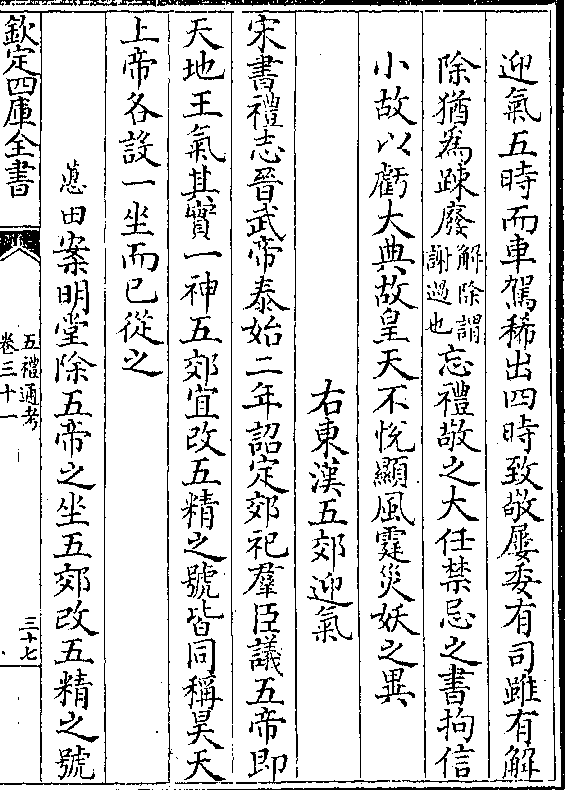 迎氣五時而車駕稀出四時致敬屢委有司雖有解
除猶為疎廢解除謂謝過也忘禮敬之大任禁忌之書拘信
小故以虧大典故皇天不悅顯風霆災妖之異
右東漢五郊迎氣
宋書禮志晉武帝泰始二年詔定郊祀羣臣議五帝即
天地王氣其實一神五郊宜改五精之號皆同稱昊天
上帝各設一坐而已從之
蕙田案明堂除五帝之坐五郊改五精之號
欽定四庫全書
五禮通考
卷三十一
三十七